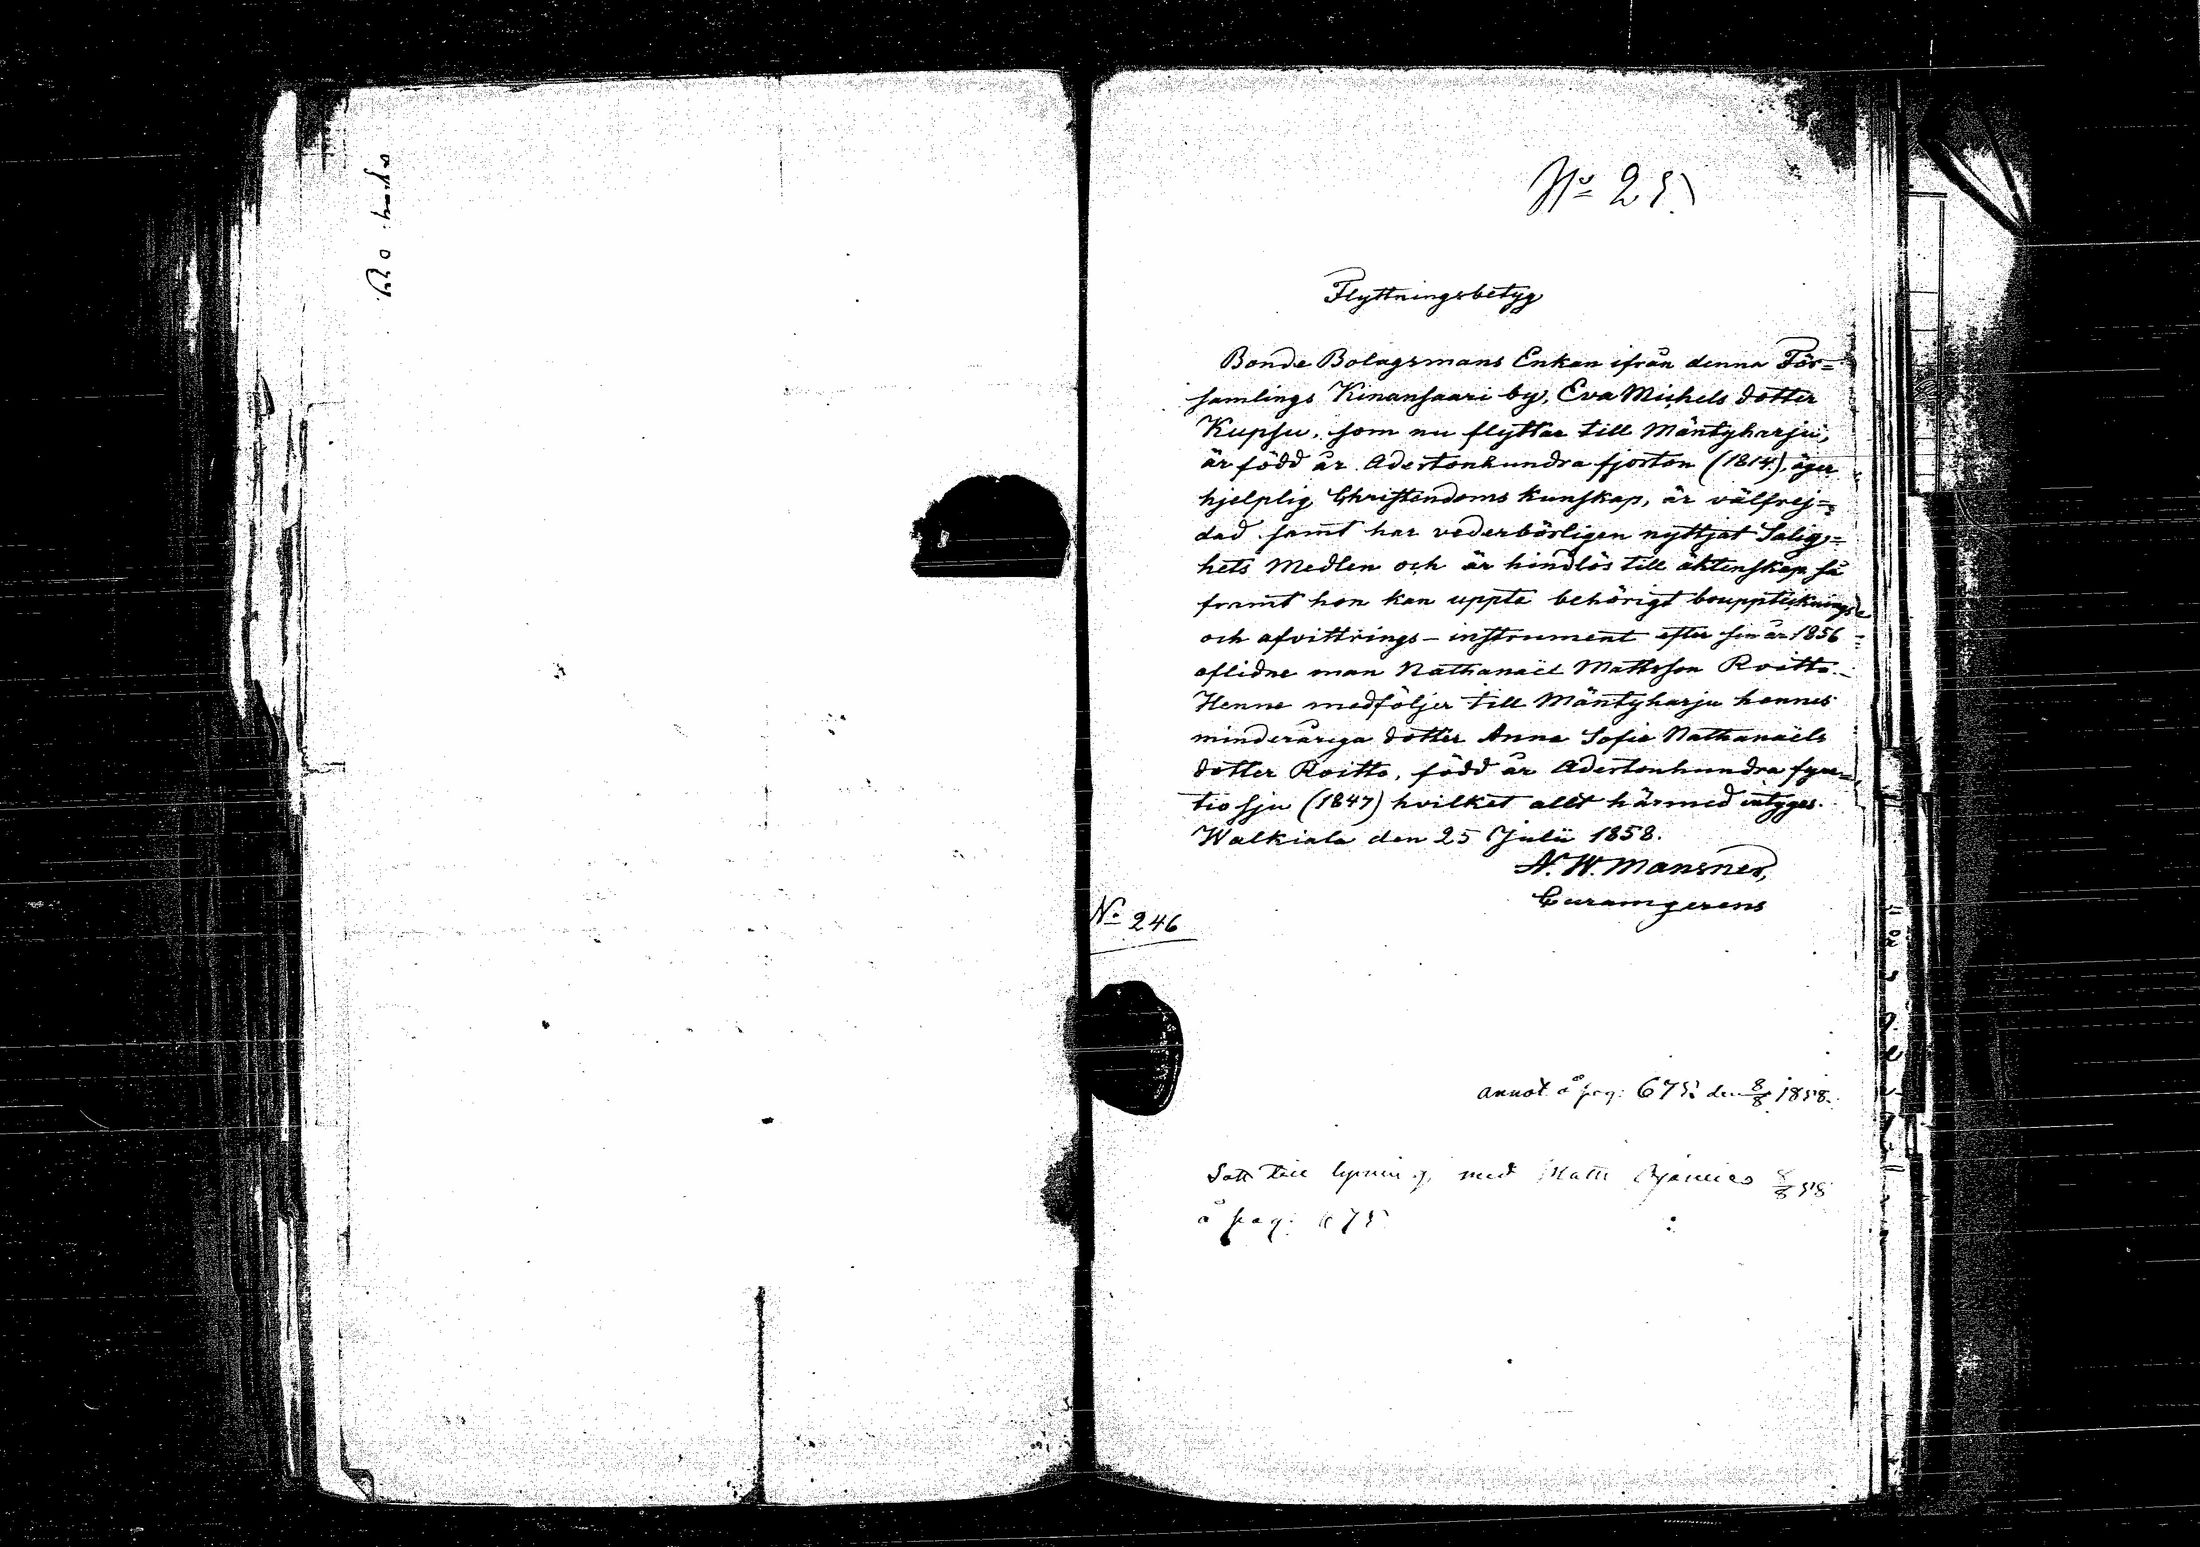 No 25.
Flyttningsbetyg
Bonde Bolagsmans Enkan ifrån denna För=
samlings Kinansaari by, Eva Michels dotter
Kupsu, som nu flyttar till Mäntyharju,
är född år Adertonhundra fjorton (1814), äger
hjelplig Christendoms kunskap, är välfrej=
dad samt har vederbörligen nyttjat Salig=
hets Medlen och är hindlös till äktenskap så
framt hon kan uppte behörigt bouppteknings
och afvittrings-instrument efter sin år 1856
aflidne man Nathanaël Mattsson Roitto.
Henne medföljer till Mäntyharju hennes
minderåriga dotter Anna Sofia Nathanaëls
dotter Roitto, född år Adertonhundra fyra=
tio sju (1847) hvilket allt härmed intygas.
Walkiala den 25 Julii 1858.
N. W. Mansner,
Curamgerens
No 246
annot. å pag: 675 den 8/8 1858.
Satt till lysning med Matts 8/8 58
å pag: 675